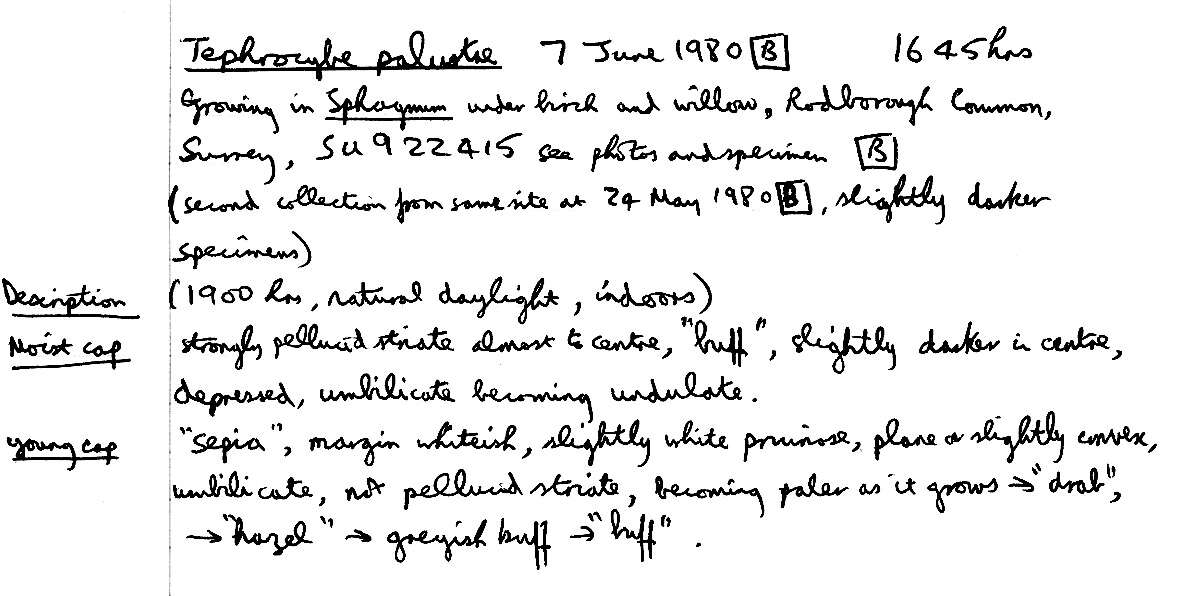 Tephrocybe palustre 7 June 1980 B 1645hrs
Growing in Sphagnum under birch and willow, Rodborough Common,
Surrey, SU 922415 see photos and specimen B
(second collection from same site as 24 May 1980 B, slightly darker
specimens)
Description (1900 hrs, natural daylight, indoors)
Moist cap strongly pellucid striate almost to centre, "buff", slightly darker in centre,
depressed, umbilicate becoming undulate.
young cap "Sepia", margin whiteish, slightly white pruinose, plane or slightly convex,
umbilicate, not pellucid striate, becoming paler as it grows → "drab",
→ "hazel" → greyish buff → "buff".